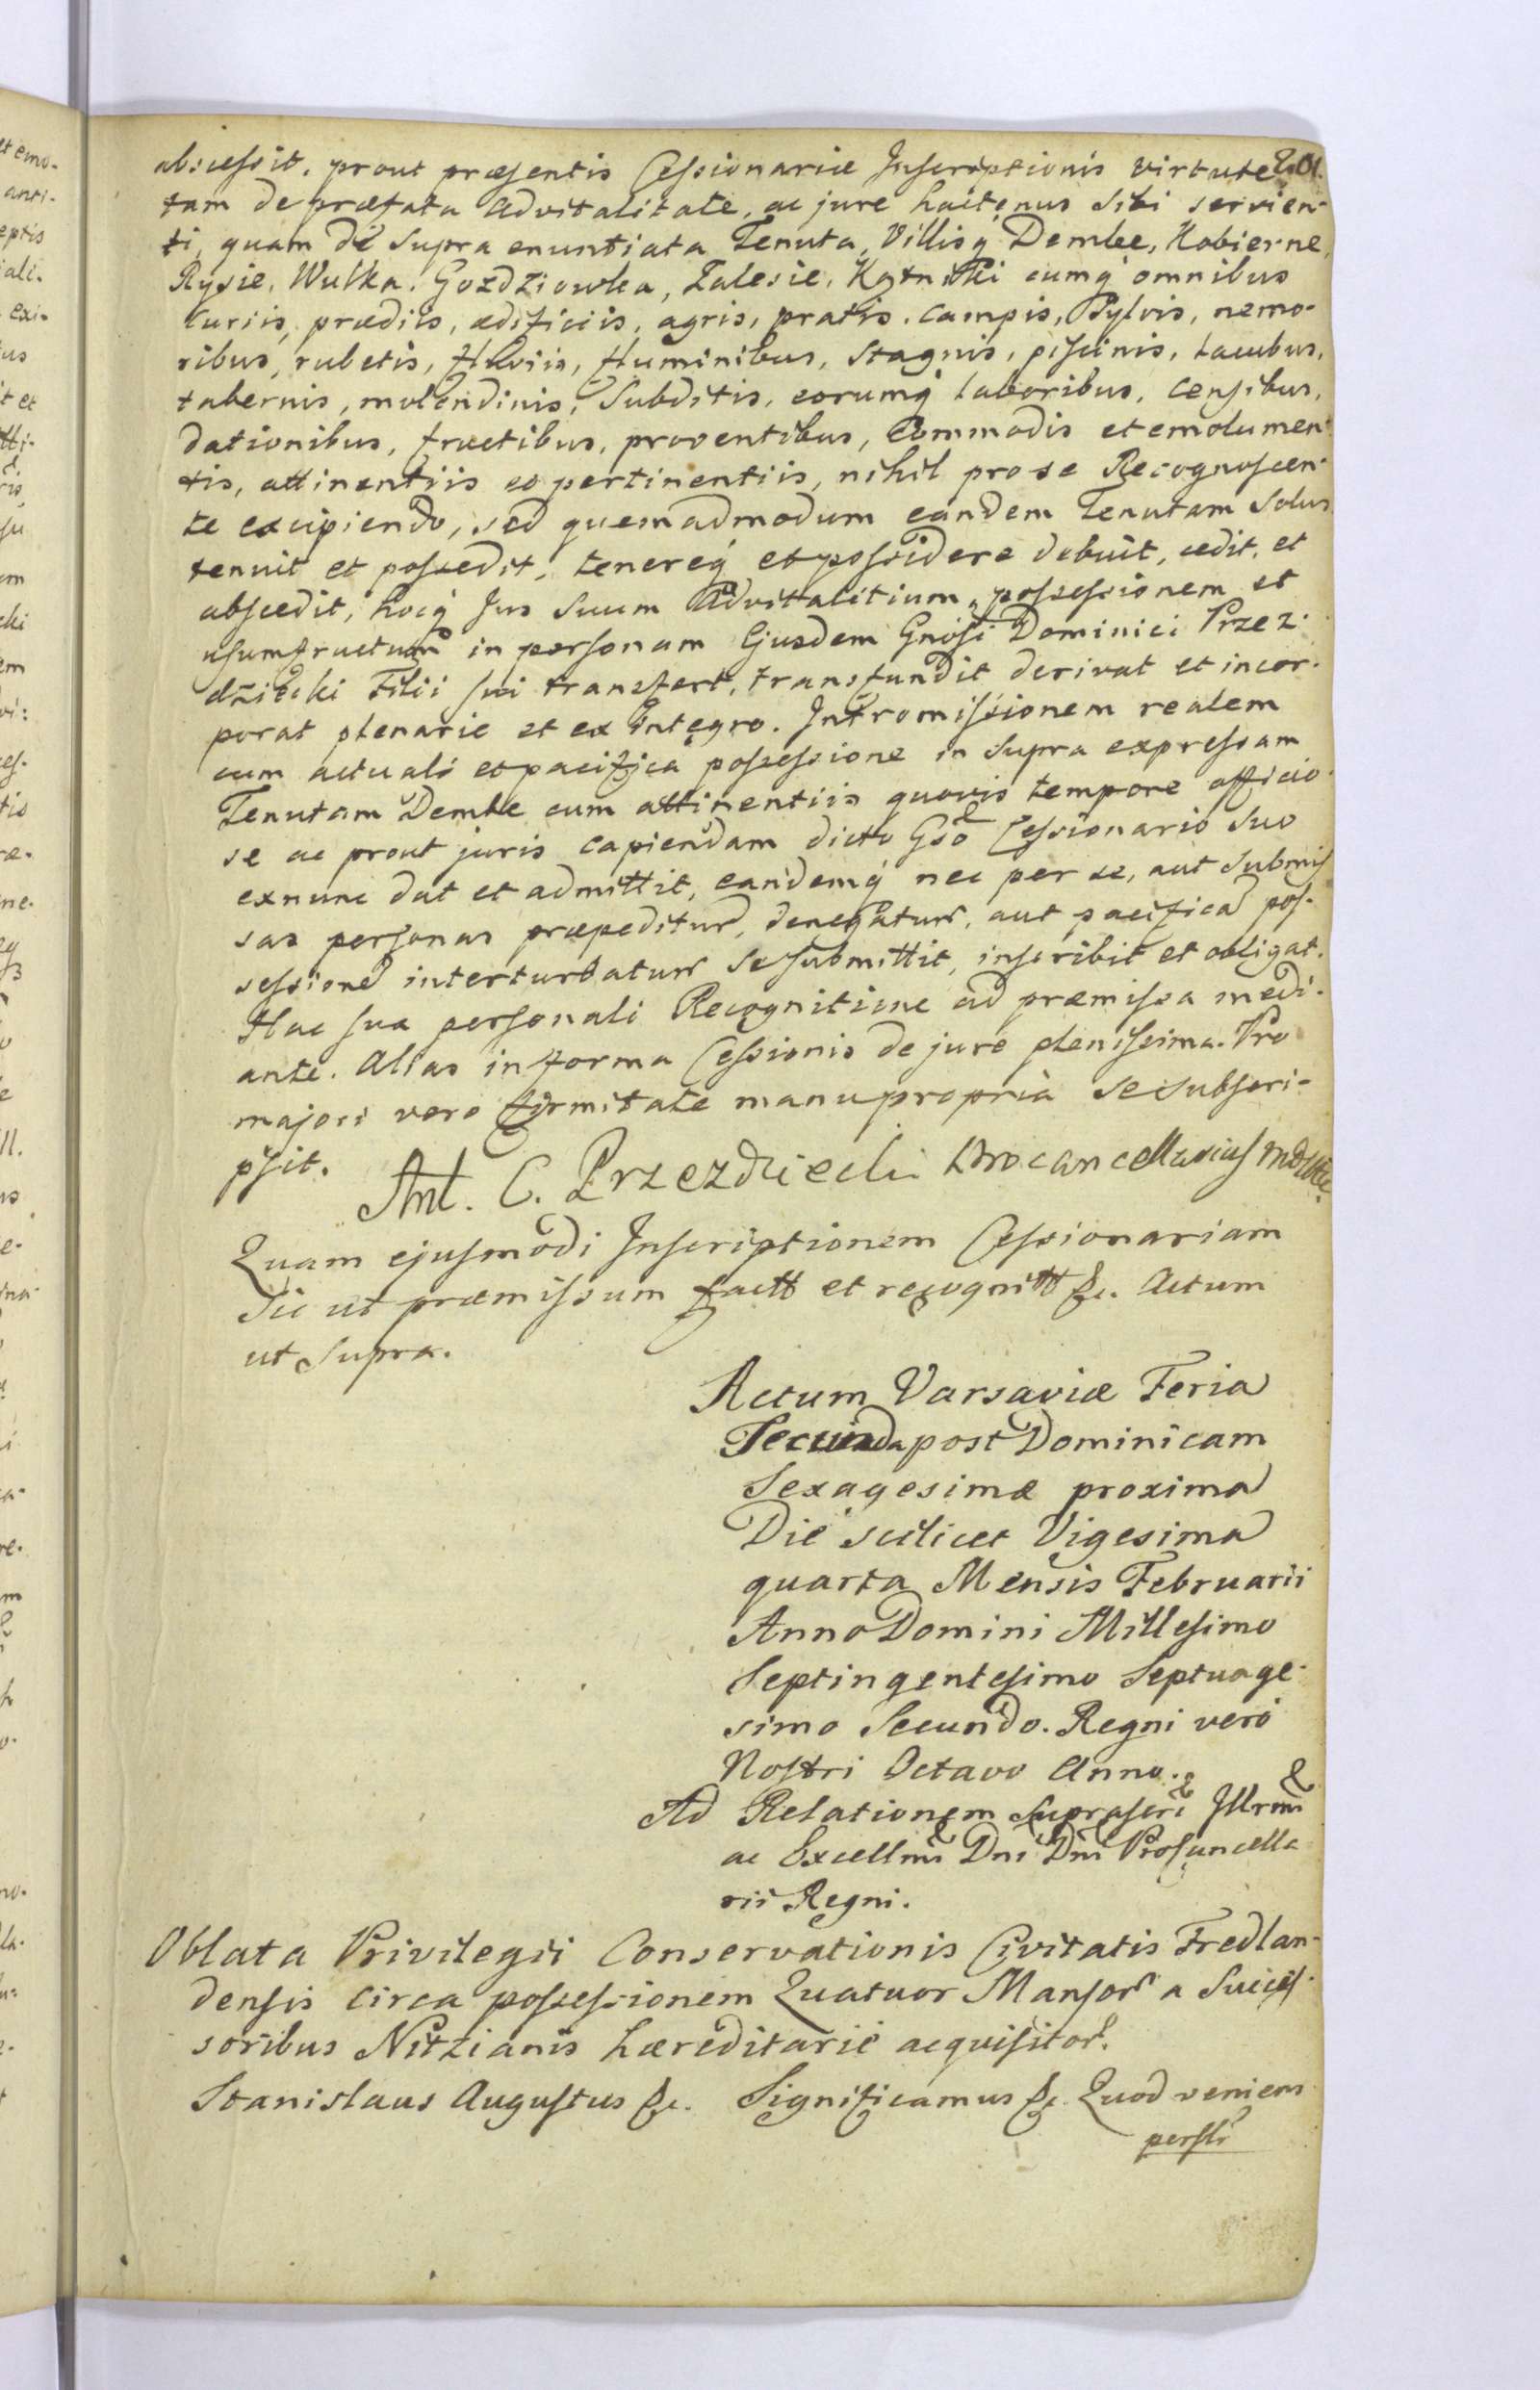 abscessit, prout præsentis Cessionariæ Inscriptionis virtute 201.
tam de præfata advitalitate, ac jure hactenus sibi servien-
ti, quam de supra enuntiata Tenuta, Villisq Dembe, Kobierne,
Rysie, Wulka, Gozdziowka, Zalesie, cumq omnibus
Curiis, prædiis, ædificiis, agris, pratis, campis, Sylvis, nemo-
ribus, rubetis, fluviis, fluminibus, stagnis, piscinis, lacubus,
tabernis, molendinis, Subditis, eorumq laboribus, censibus,
dationibus, fructibus, proventibus, Commodis et emolumen-
tis, attinentiis et pertinentiis, nihil pro se Recognoscen-
te excipiendo, sed quemadmodum eandem Tenutam Solus
tenuit et possedit, tenereq et possidere debuit, cedit, et
abscedit, hocq Jus Suum Advitalitium, possessionem et
usumfructum in personam Ejusdem Gnosi Dominici Przez-
dziecki Filii sui transfert, transfundit derivat et incor-
porat plenarie et ex integro. Intromissionem realem
cum actuali et pacifica possessione in Supra expressam
Tenutam Dembe cum attinentiis quovis tempore officio-
se ac prout juris capiendam dicto Gso Cessionario Suo
exnunc dat et admittit, eandemq nec per se, aut Submis
sas personas præpeditur, denegatur, aut pacifica pos-
sessione interturbatur se submittit, inscribit et obligat.
Hac sua personali Recognitione ad præmissa medi-
ante. Alias in forma Cessionis de jure plenissima. Pro
majori vero firmitate manu propria se subscri-
psit.
Ant. C. Przezdziecki Procancellarius
Quam ejusmodi Inscriptionem Cessionariam
Sic ut præmissum factt et recognitt &c. Actum
ut Supra.
Actum Varsaviæ Feria
Secunda post Dominicam
Sexagesimæ proxima
Die scilicet Vigesima
quarta Mensis Februarii
Anno Domini Millesimo
Septingentesimo Septuage-
simo Secundo. Regni vero
Nostri Octavo Anno.
Ad Relationem Suprascri Illrmi
ac Excellmi Dni Dni Procancella
rii Regni.
Oblata Privilegii Conservationis Civitatis Fredlan-
densis circa possessionem Quatuor Mansor a Succes-
soribus Nitzianis hæreditarie acquisitor.
Stanislaus Augustus &c. Significamus &c. Quod veniens